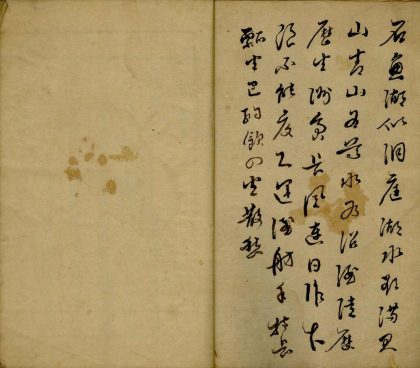 石魚湖似洞庭湖水欲滿君
山青山為尊水為沼酒徒歷
歷坐洲島長風連日作大
浪不能廢人運酒舫手持長
瓢坐巴酌飲四坐散愁